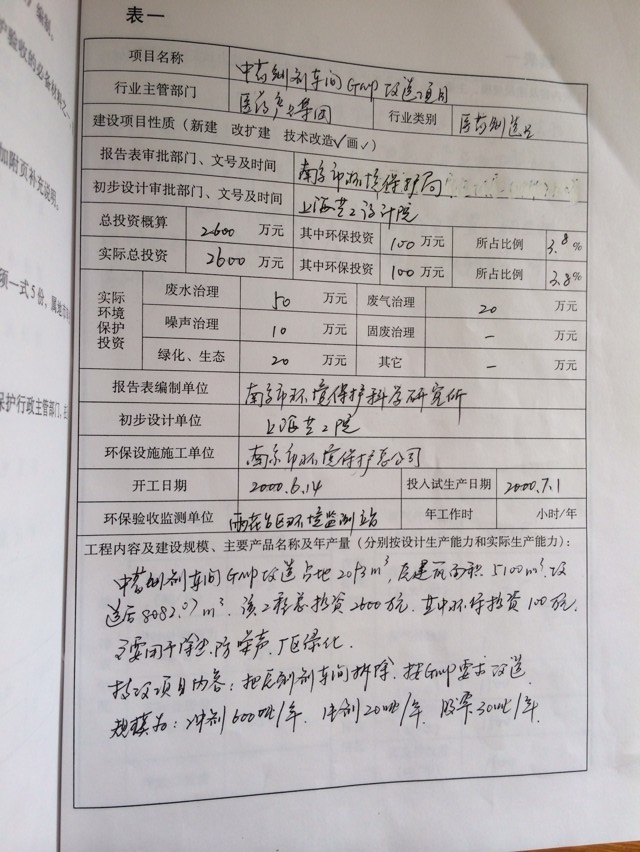 编制。
护验收的必备材料之一
加附页补充说明。
项一式5份，属地
保护行政主管部门，
表一
项目名称 中药制剂车间GMP改造项目
行业主管部门 医药产业集团 行业类别 医药制造业
建设项目性质（新建 改扩建 技术改造√画√）
报告表审批部门、文号及时间 南京市环境保护局
初步设计审批部门、文号及时间 上海医工设计院
总投资概算 2600 万元 其中环保投资 100 万元 所占比例 3.8 %
实际总投资 2600 万元 其中环保投资 100 万元 所占比例 3.8%
实际环境保护投资 废水治理 50 万元 废气治理 20 万元
噪声治理 10 万元 固废治理 — 万元
绿化、生态 20 万元 其它 — 万元
报告表编制单位 南京市环境保护科学研究所
初步设计单位 上海医工院
环保设施施工单位 南京市环境保护总公司
开工日期 2000.6.14 投入试生产日期 2000.7.1
环保验收监测单位 雨花台区环境监测站 年工作时 小时/年
工程内容及建设规模、主要产品名称及年产量（分别按设计生产能力和实际生产能力）：
中药制剂车间GMP改造占地 m³，原建筑面积5100m²，改
造后8082.07m²。该工程总投资2600万元，其中环保投资100万元，
主要用于除尘、防噪声、厂区绿化。
技改项目内容：把原制剂车间拆除，按GMP要求改造
规模为：冲剂600吨/年、 20吨/年、胶囊30吨/年。